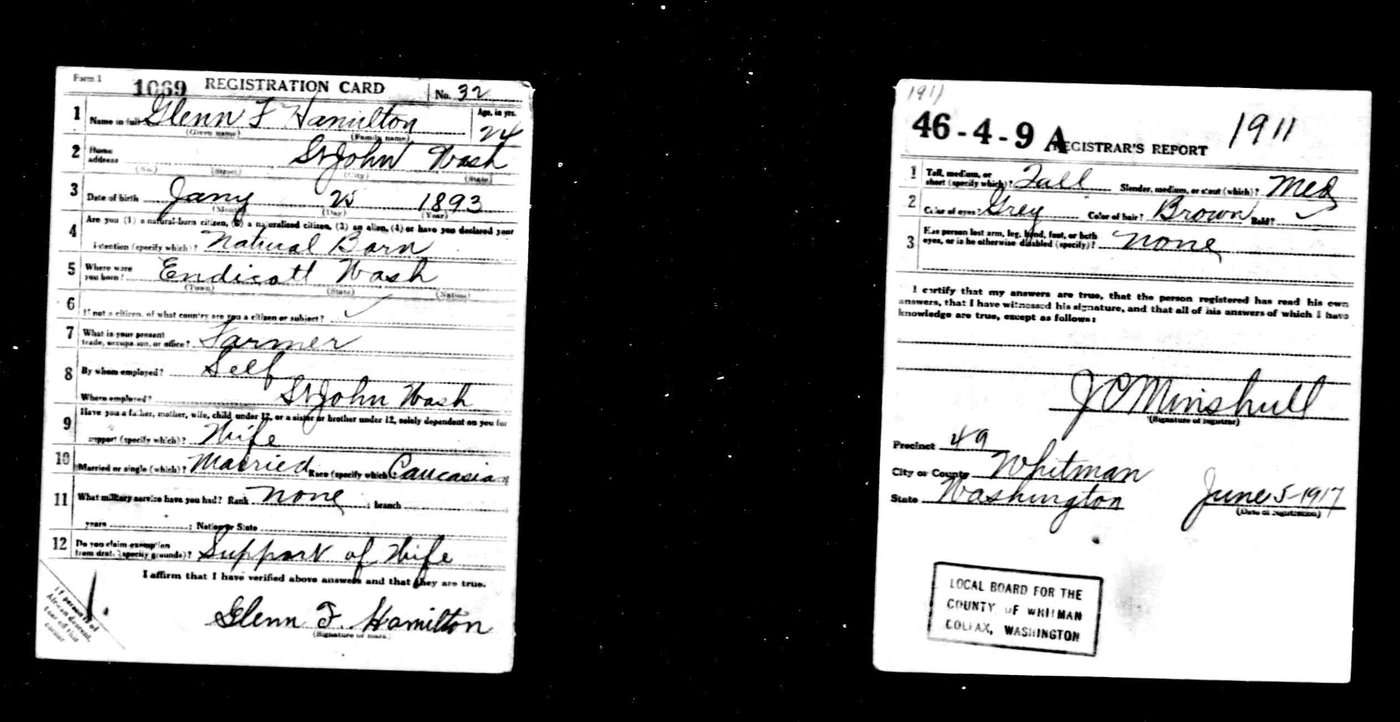 Form 1
1069 REGISTRATION CARD No. 32
1 Name in full Glenn F Hamilton Age, in yrs. 24
(Given name) (Family name)
2 Home address St John Wash
(No.) (Street) (City) (State)
3 Date of birth Jany 1893
(Month) (Day) (Year)
4 Are you (1) a natural-born citizen, (2) a naturalized citizen, (3) an alien, (4) or have you declared your
intention (specify which)? Natural Born
5 Where were you born? Endicott Wash
(Town) (State) (Nation)
6 If not a citizen, of what country are you a citizen or subject?
7 What is your present trade, occupation, or office? Farmer
8 By whom employed? Self
Where employed? St John Wash
9 Have you a father, mother, wife, child under 12, or a sister or brother under 12, solely dependent on you for
support (specify which)? Wife
10 Married or single (which)? Married Race (specify which)? Caucasian
11 What military service have you had? Rank none ; branch
years ; Nation or State
12 Do you claim exemption from draft (specify grounds)? Support of Wife
I affirm that I have verified above answers and that they are true.
Glenn F. Hamilton
(Signature or mark)
If person is of
African descent,
tear off this
corner
1911
46-4-9 A REGISTRAR'S REPORT 1911
1 Tall, medium, or short (specify which)? Tall Slender, medium, or stout (which)? Med
2 Color of eyes? Grey Color of hair? Brown Bald?
3 Has person lost arm, leg, hand, foot, or both
eyes, or is he otherwise disabled (specify)? none
I certify that my answers are true, that the person registered has read his own
answers, that I have witnessed his signature, and that all of his answers of which I have
knowledge are true, except as follows:
J C Minshull
(Signature of registrar)
Precinct 49
City or County Whitman
State Washington June 5-1917
(Date of registration)
LOCAL BOARD FOR THE
COUNTY OF WHITMAN
COLFAX, WASHINGTON